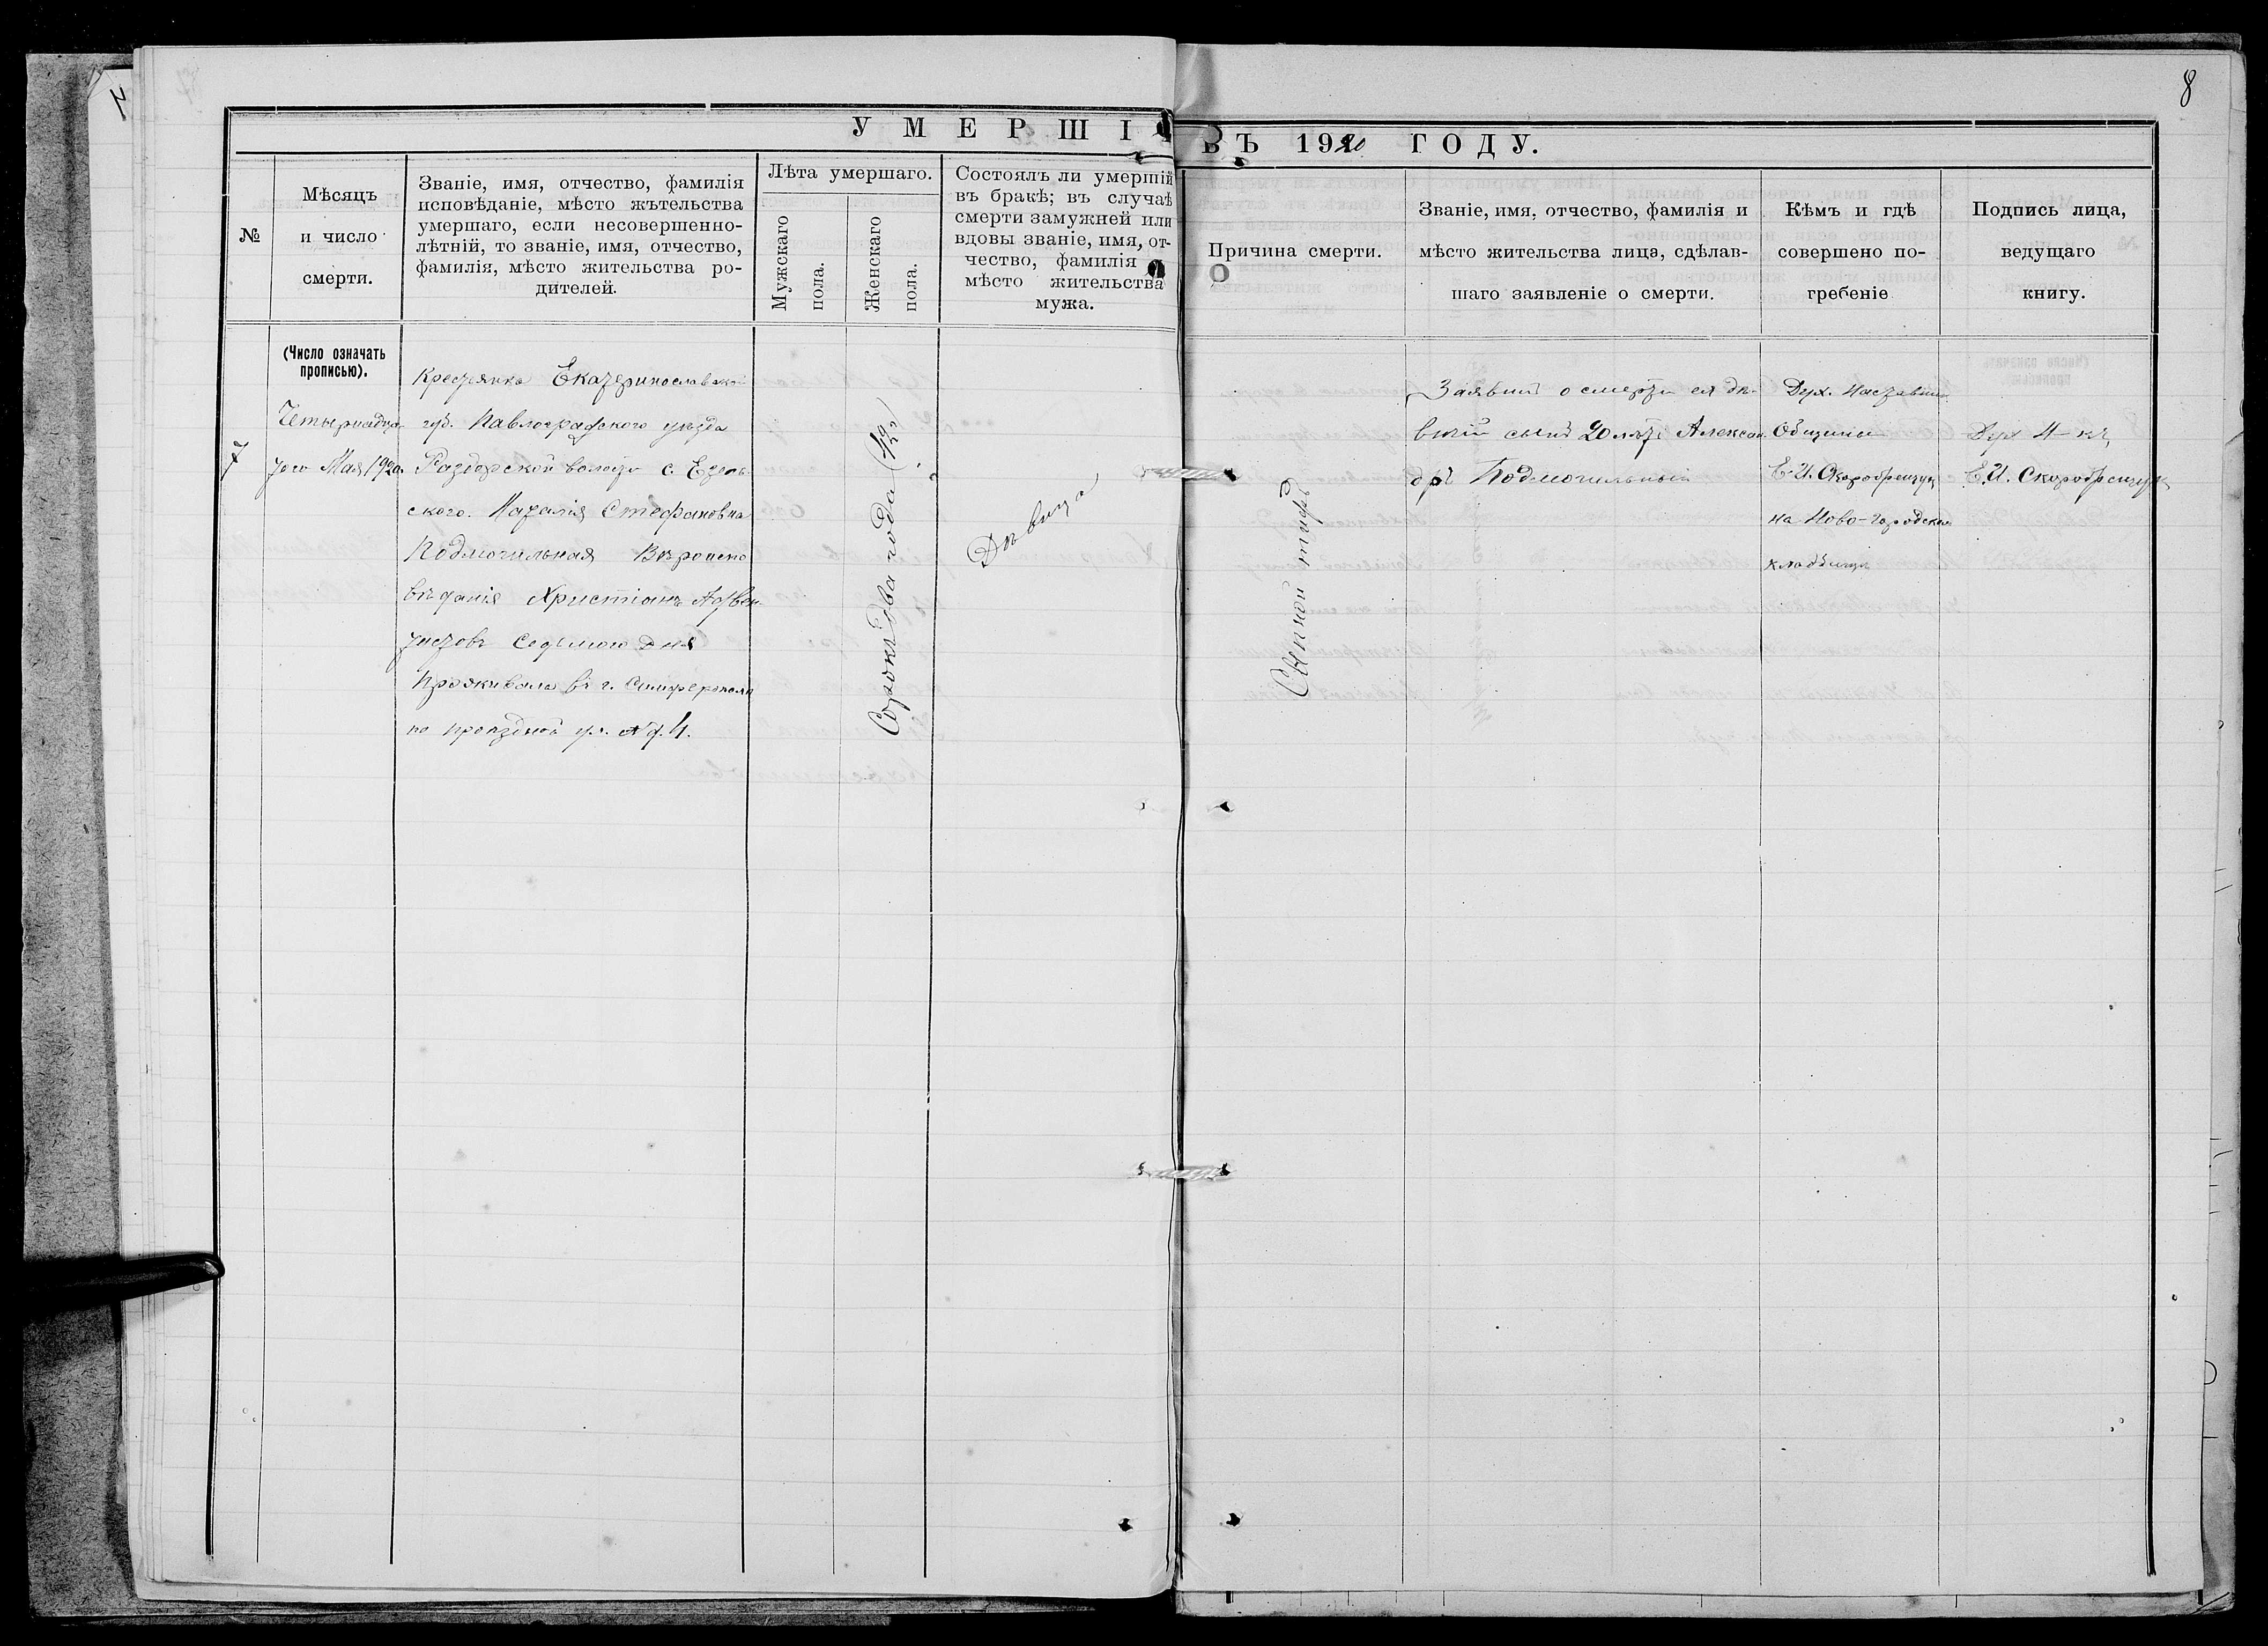 8
УМЕРШІ
ВЪ 1920 ГОДУ.
№
Мѣсяцъ
и число
смерти.
Званіе, имя, отчество, фамилія
исповѣданіе, мѣсто жѣтельства
умершаго, если несовершенно-
лѣтній, то званіе, имя, отчество,
фамилія, мѣсто жительства ро-
дителей.
Лѣта умершаго.
Мужскаго
пола.
Женскаго
пола.
Состоялъ ли умершій
въ бракѣ; въ случаѣ
смерти замужней или
вдовы званіе, имя, от-
чество, фамилія
мѣсто жительства
мужа.
Причина смерти.
Званіе, имя, отчество, фамилія и
мѣсто жительства лица, сдѣлав-
шаго заявленіе о смерти.
Кѣмъ и гдѣ
совершено по-
гребеніе
Подпись лица,
ведущаго
книгу.
7
(Число означать
прописью).
Четырнадца-
того Мая 1920.
Крестянка Екатеринославской
губ. Павлоградского уѣзда
Раздорской волости с.
Наталія Стефановна
Подмогильная Вѣроиспо
вѣданія Христіанъ Адвен
тистовъ Седьмого Дня
Проживала въ г. Симферополѣ
по проѣздной ул. № д. 4.
Сорокъ два года (42)
Дѣвица
Сыпной тифъ
Заявилъ о смерти ея дѣ-
вичій сынъ 20 лѣтъ Алексан
дръ Подмогильный
Дух. Наставник
Общины
Е. И. Скоробрещук
на Ново-Городском
кладбищи
Дух Н-къ
Е. И. Скоробрещук